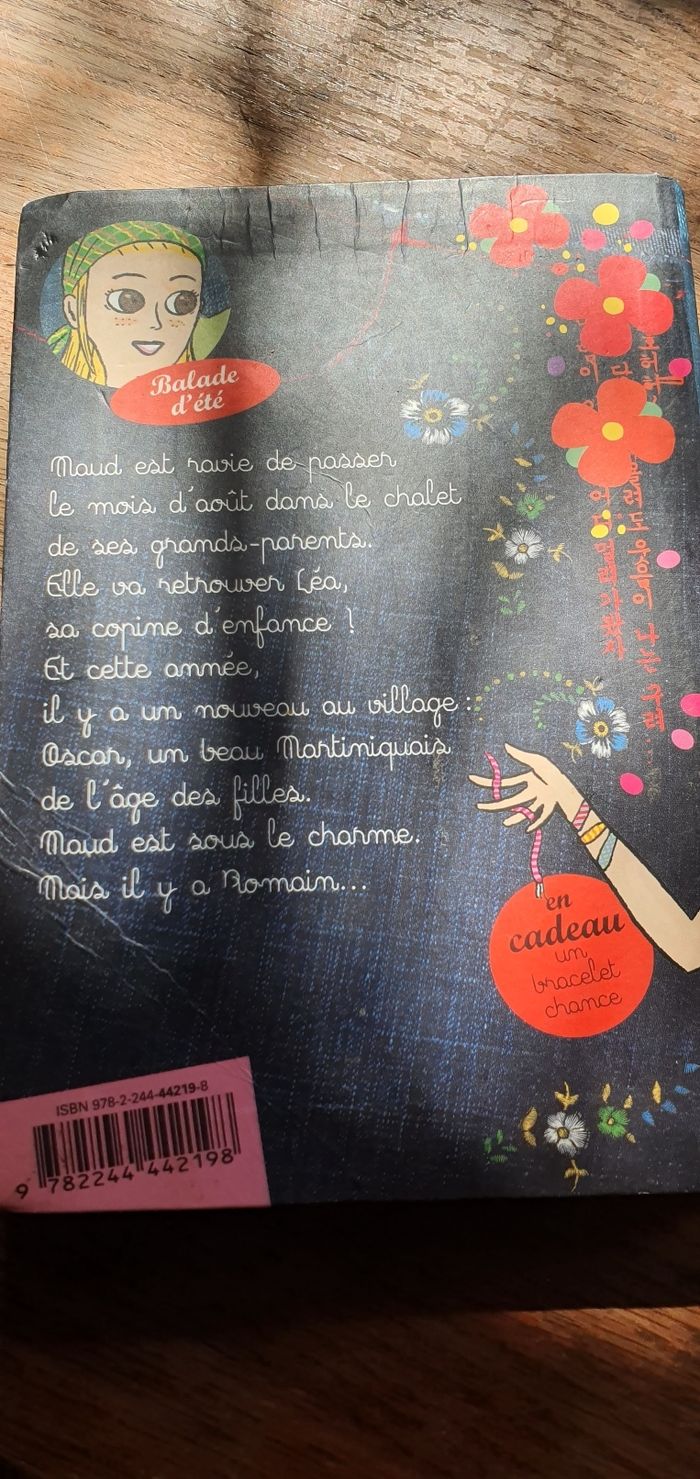 Balade
d'été
Maud est ravie de passer
le mois d'août dans le chalet
de ses grands-parents.
Elle va retrouver Léa,
sa copine d'enfance !
Et cette année,
il y a un nouveau au village :
Oscar, un beau Martiniquais
de l'âge des filles.
Maud est sous le charme.
Mais il y a Romain...
en
cadeau
un
bracelet
chance
ISBN 978-2-244-44219-8
9 782244 442198